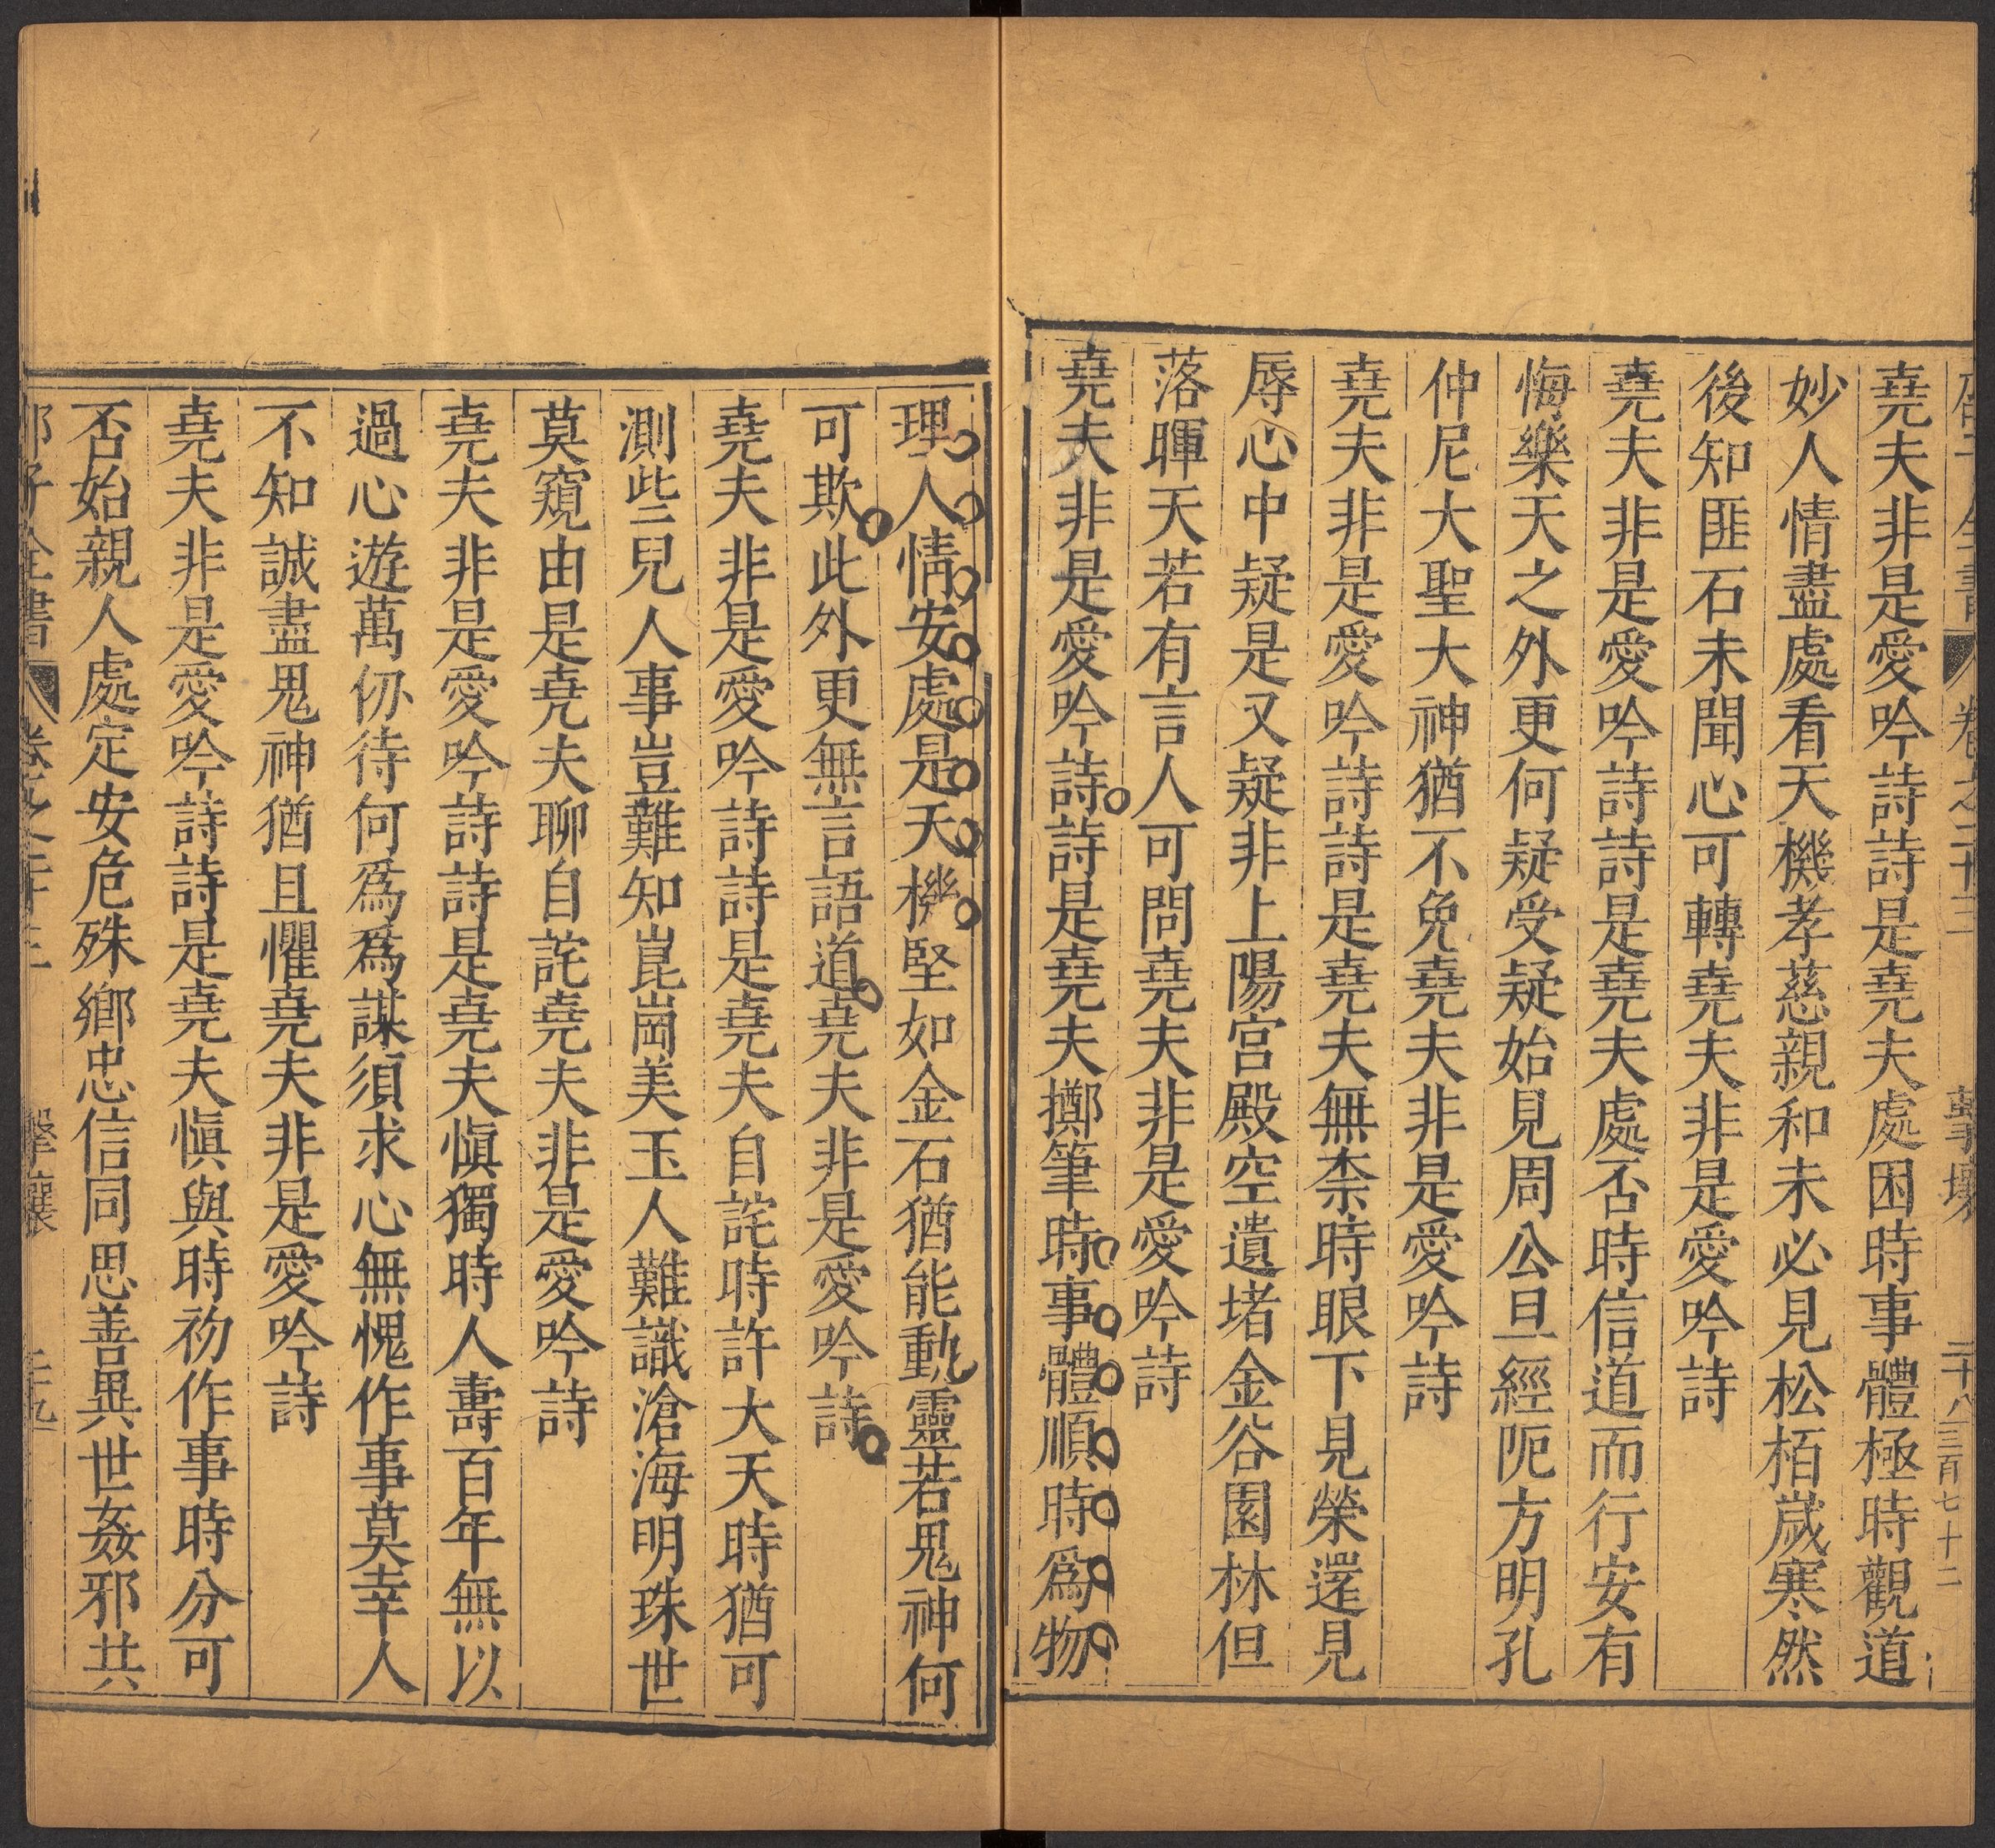 堯夫非是愛吟詩詩是堯夫處困時事體極時觀道
妙人情盡處看天機孝慈親和未必見松栢歲寒然
後知匪石未聞心可轉堯夫非是愛吟詩
堯夫非是愛吟詩詩是堯夫處否時信道而行安有
悔樂天之外更何疑受疑始見周公旦經阨方明孔
仲尼大聖大神猶不免堯夫非是愛吟詩
堯夫非是愛吟詩詩是堯夫無柰時眼下見榮還見
辱心中疑是又疑非上陽宮殿空遺堵金谷園林但
落暉天若有言人可問堯夫非是愛吟詩
堯夫非是愛吟詩詩是堯夫擲筆時事體順時爲物
理人情安處是天機堅如金石猶能動靈若鬼神何
可欺此外更無言語道堯夫非是愛吟詩
堯夫非是愛吟詩詩是堯夫自詫時許大天時猶可
測些兒人事豈難知崑崗美玉人難識滄海明珠世
莫窺由是堯夫聊自詫堯夫非是愛吟詩
堯夫非是愛吟詩詩是堯夫愼獨時人壽百年無以
過心遊萬仞待何爲爲謀須求心無愧作事莫幸人
不知誠盡鬼神猶且懼堯夫非是愛吟詩
堯夫非是愛吟詩詩是堯夫愼與時初作事時分可
否始親人處定安危殊鄉忠信同思善異世姦邪共